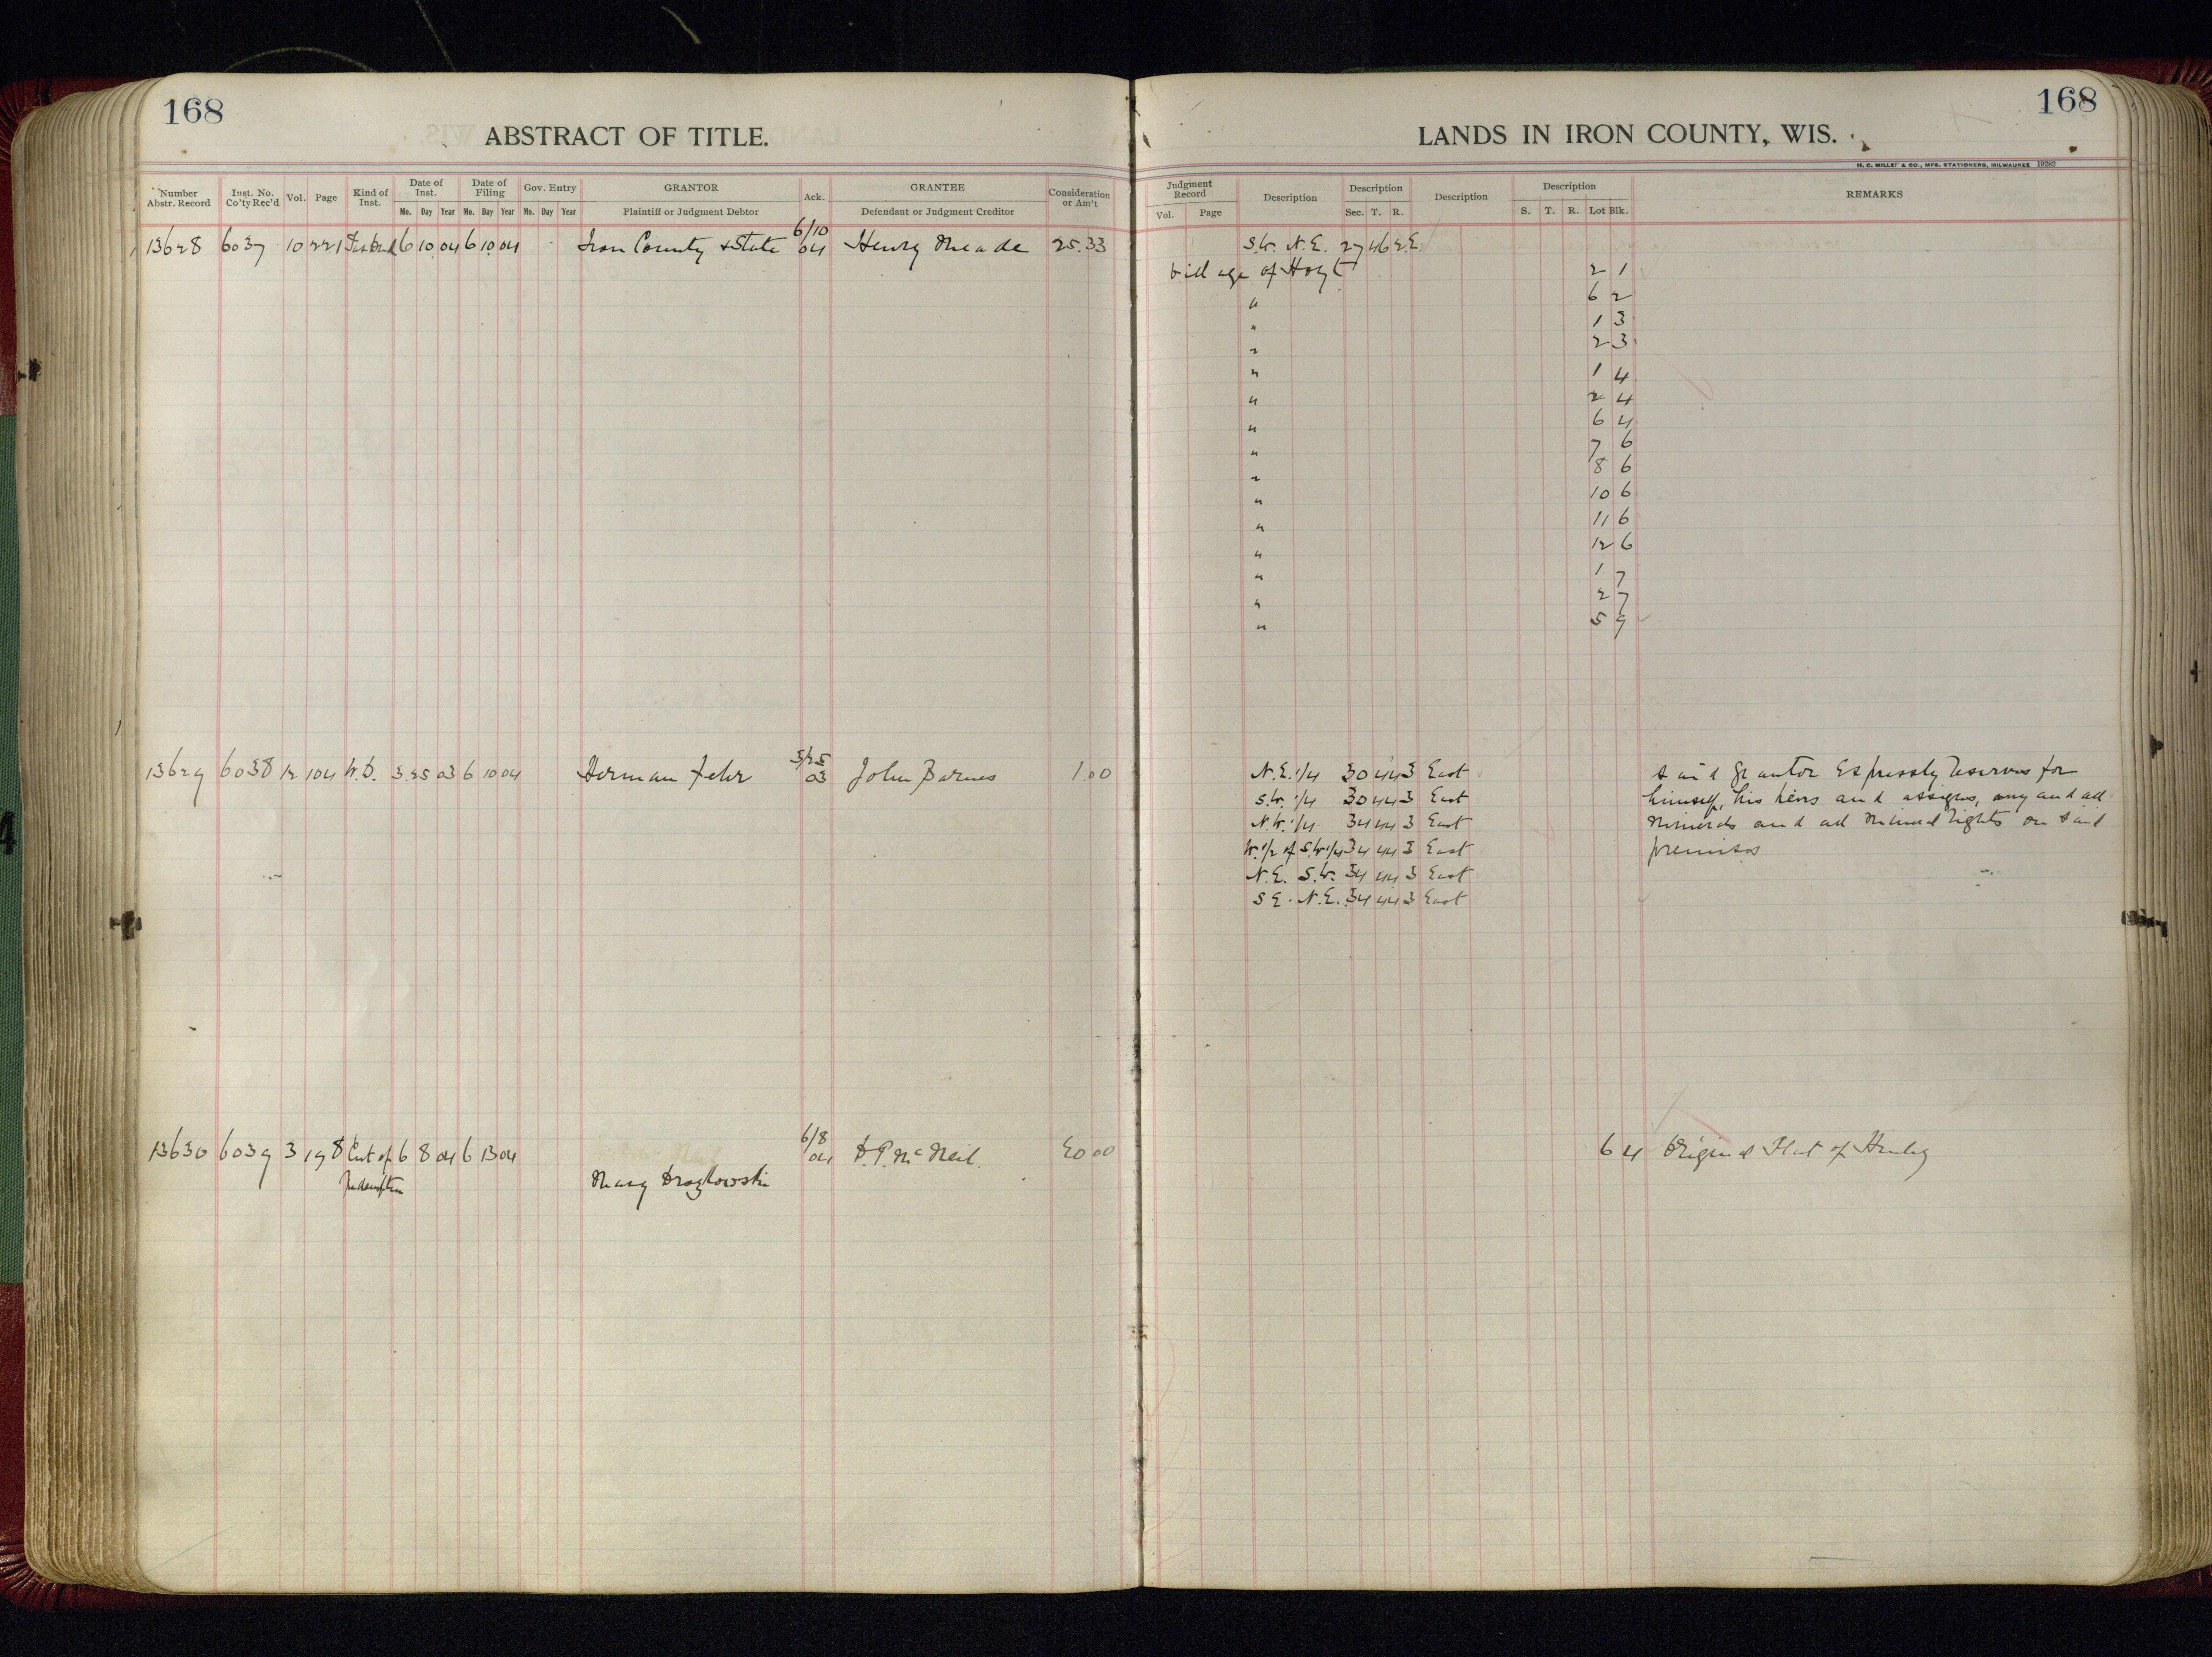 168
ABSTRACT OF TITLE.
LANDS IN IRON COUNTY, WIS.
168
H. C. MILLER & CO., MFG. STATIONERS, MILWAUKEE 19282
Number Abstr. Record
Inst. No. Co'ty Rec'd
Vol.
Page
Kind of Inst.
Date of Inst.
Mo. Day Year
Date of Filing
Mo. Day Year
Gov. Entry
Mo. Day Year
GRANTOR
Plaintiff or Judgment Debtor
Ack.
GRANTEE
Defendant or Judgment Creditor
Consideration or Am't
Judgment Record
Vol. Page
Description
Description
Sec. T. R.
Description
Description
S. T. R. Lot Blk.
REMARKS
13628 6037 10 221 6 10 04 6 10 04 Iron County & State 6/10 04 Henry Meade 25.33 S.W. N.E. 27 46 2 E.
Village of Hoyt 2 1
" 6 2
" 1 3
" 2 3
" 1 4
" 2 4
" 6 4
" 7 6
" 8 6
" 10 6
" 11 6
" 12 6
" 1 7
" 2 7
" 5 9
13629 6038 12 104 W.D. 3 25 03 6 10 04 Herman Fehr 3/25 03 John Barnes 1.00 N.E. 1/4 30 44 3 East Said grantor Expressly reserves for
S.W. 1/4 30 44 3 East himself, his heirs and assigns, any and all
N.W. 1/4 34 44 3 East minerals and all mineral rights on said
W. 1/2 of S.W. 1/4 34 44 3 East premises
N.E. S.W. 34 44 3 East
S.E. N.E. 34 44 3 East
13630 6039 3 198 Cert of 6 8 04 6 13 04 6/8 04 D.P. McNeil. 6 4 Original Plat of Hurley
Redemption Mary